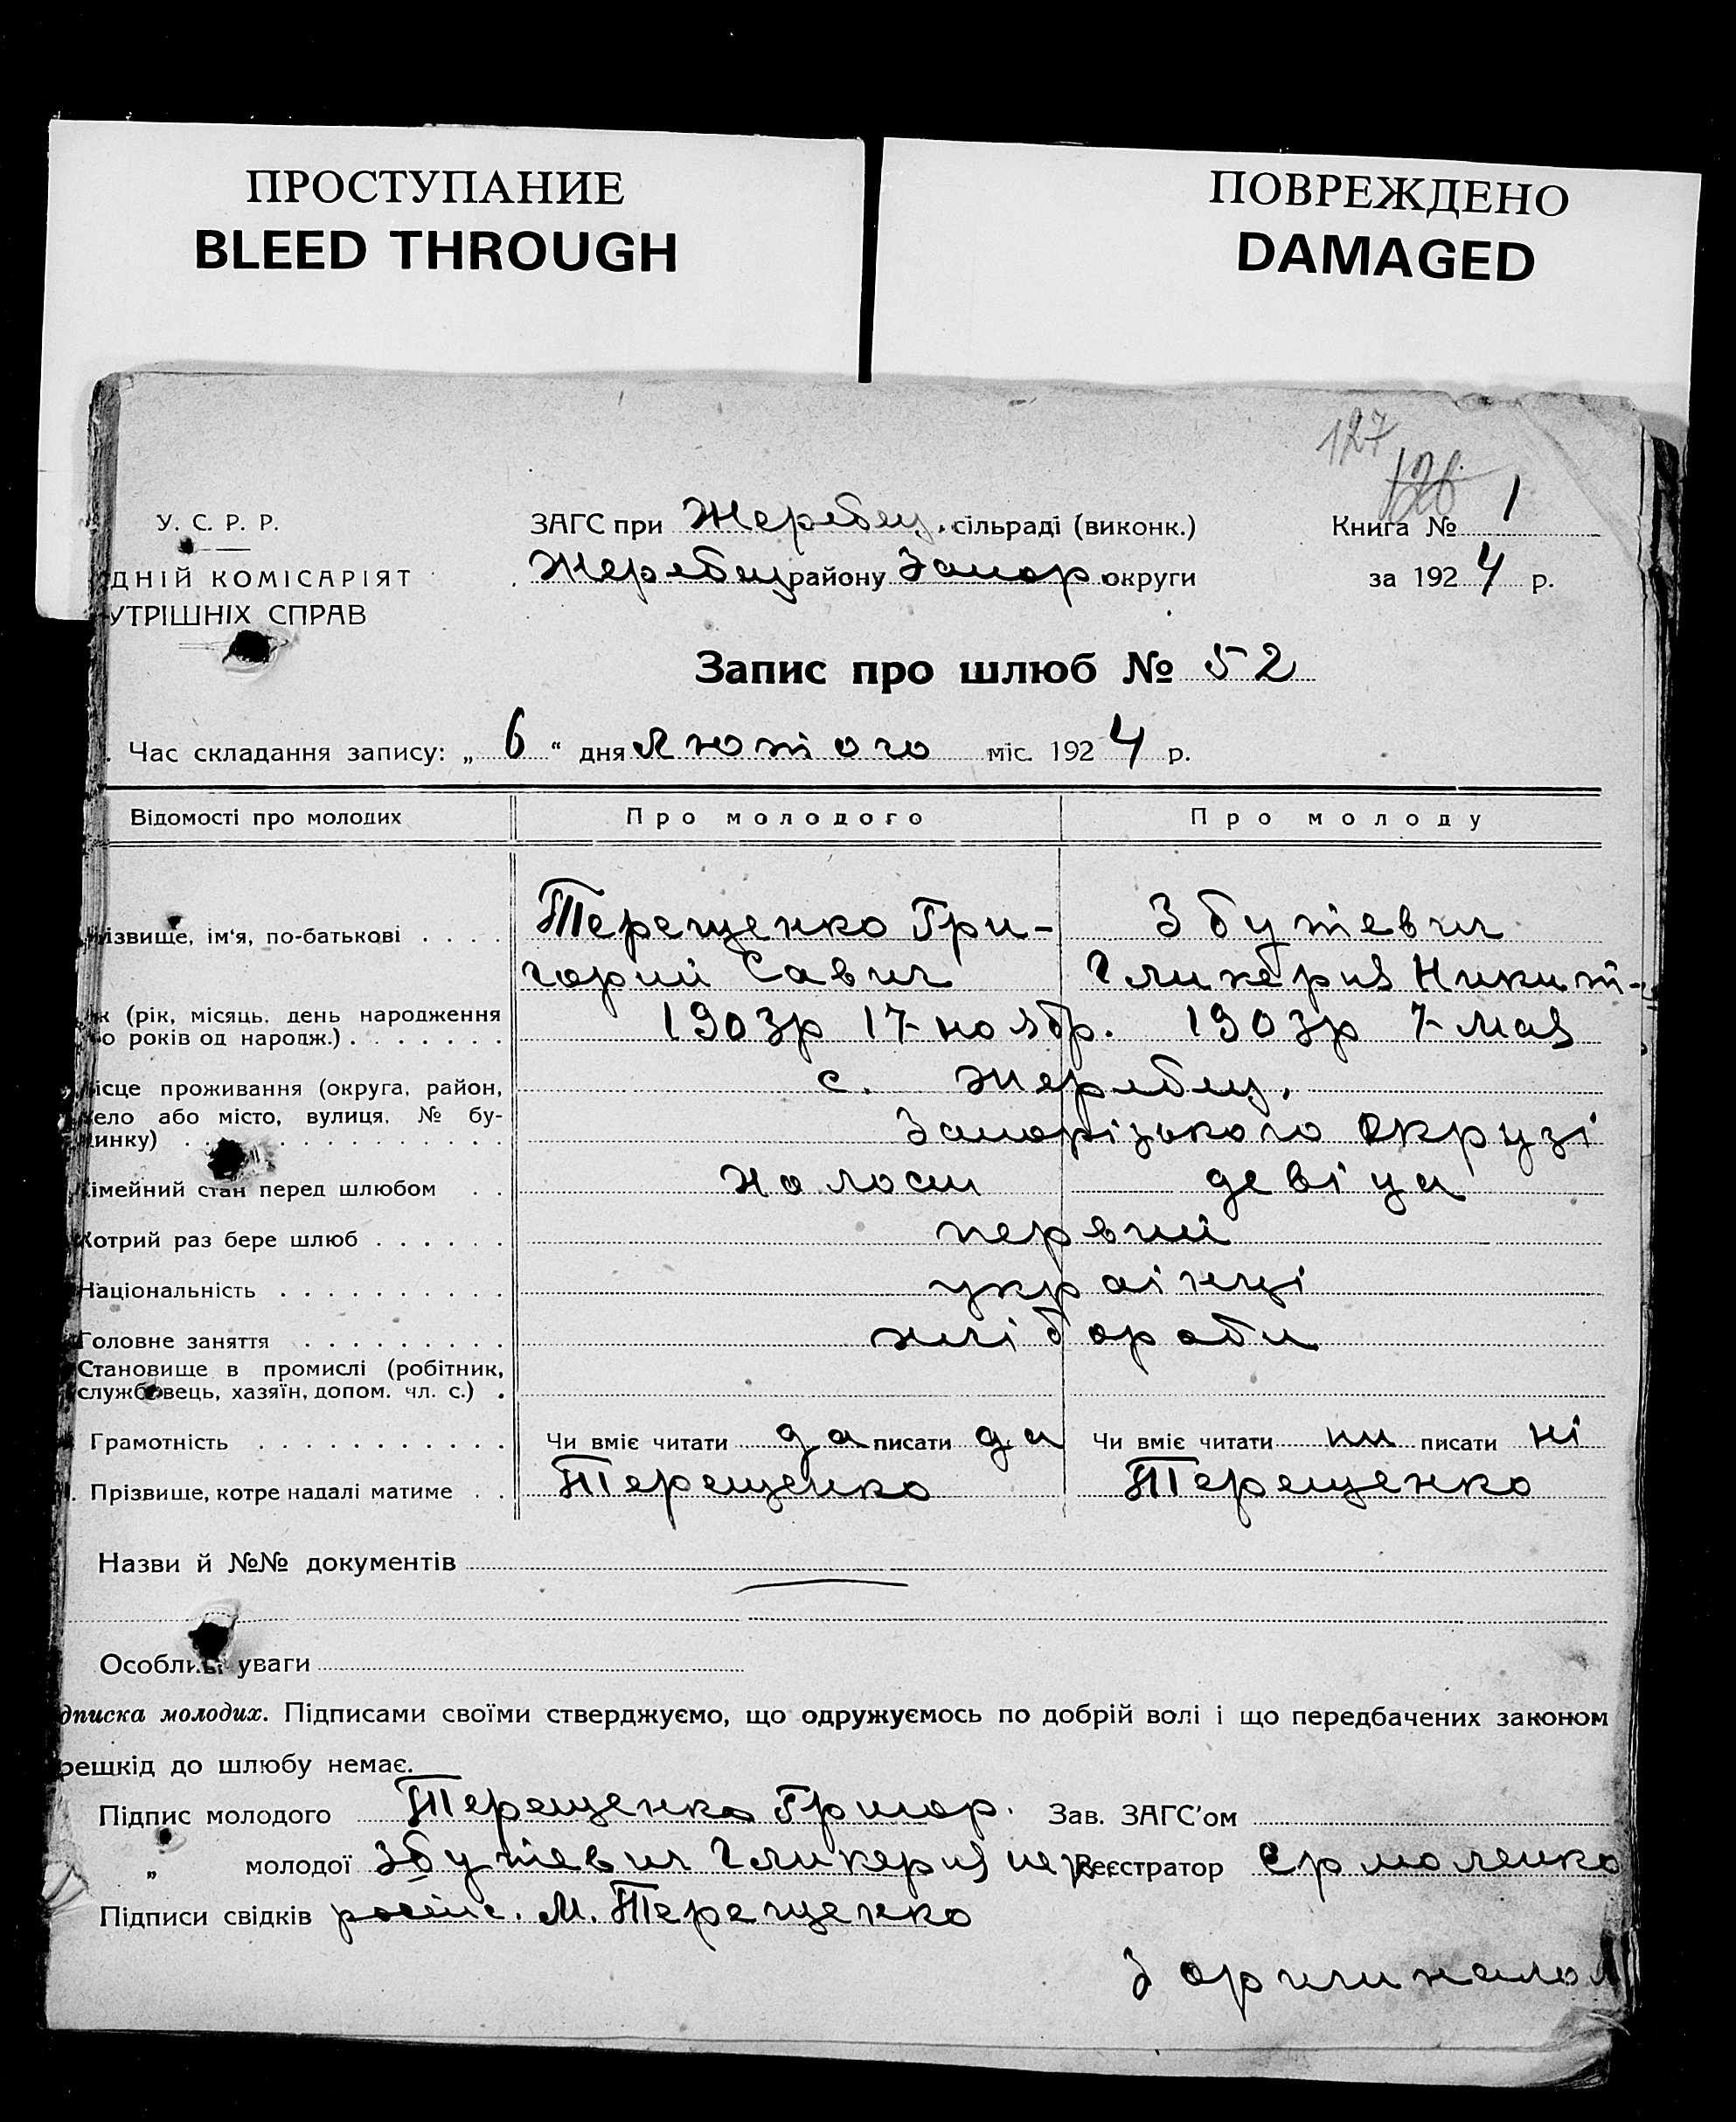 ПРОСТУПАНИЕ
BLEED THROUGH
ПОВРЕЖДЕНО
DAMAGED
127
126
У. С. Р. Р.
ДНІЙ КОМІСАРІЯТ
УТРІШНІХ СПРАВ
ЗАГС при Жеребец. сільраді (виконк.)
Жеребец району Запор округи
Книга № 1
за 1924 р.
Запис про шлюб № 52
Час складання запису: „ 6 “ дня Лютого міс. 1924 р.
Відомості про молодих Про молодого Про молоду
ізвище, ім'я, по-батькові . . . . Терещенко Гри- Збутевич
горий Савич Гликерия Никит-
к (рік, місяць, день народження
о років од народж.) . . . . . . . 1903р 17 ноябр. 1903р 7 мая
ісце проживання (округа, район, с. Жеребец.
ело або місто, вулиця, № бу-
инку) . . . . . . . . . . . . . Запорізького Окрузі
імейний стан перед шлюбом . . холост девіца
Котрий раз бере шлюб . . . . . . первий
Національність . . . . . . . . . . українці
Головне заняття . . . . . . . . . хліборобы
Становище в промислі (робітник,
службовець, хазяїн, допом. чл. с.) .
Грамотність . . . . . . . . . . . Чи вміє читати да писати да Чи вміє читати ни писати ні
Прізвище, котре надалі матиме . . Терещенко Терещенко
Назви й №№ документів
Особливі уваги
дписка молодих. Підписами своїми стверджуємо, що одружуємось по добрій волі і що передбачених законом
решкід до шлюбу немає.
Підпис молодого Терещенко Григор. Зав. ЗАГС'ом
„ молодої Збутевич Гликерия нер. Реєстратор Єрмоленко
Підписи свідків М. Терещенко
З оригиналом